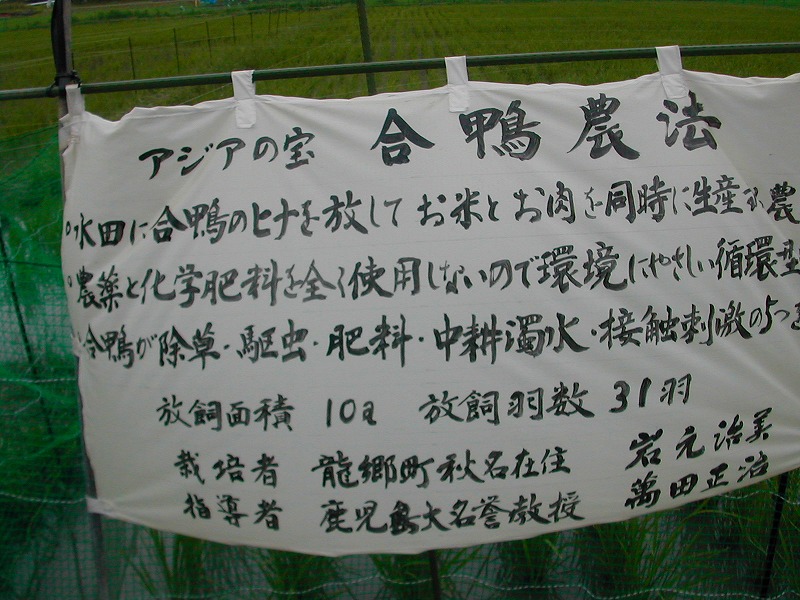 アジアの宝 合鴨農法
○水田に合鴨のヒナを放して お米と お肉を同時に生産する農
○農薬と化学肥料を全く使用しないので環境にやさしい循環型
○合鴨が除草・駆虫・肥料・中耕濁水・接触刺激の5つを
放飼面積 10a 放飼羽数 31羽
栽培者 龍郷町秋名在住 岩元治美
指導者 鹿児島大名誉教授 萬田正治